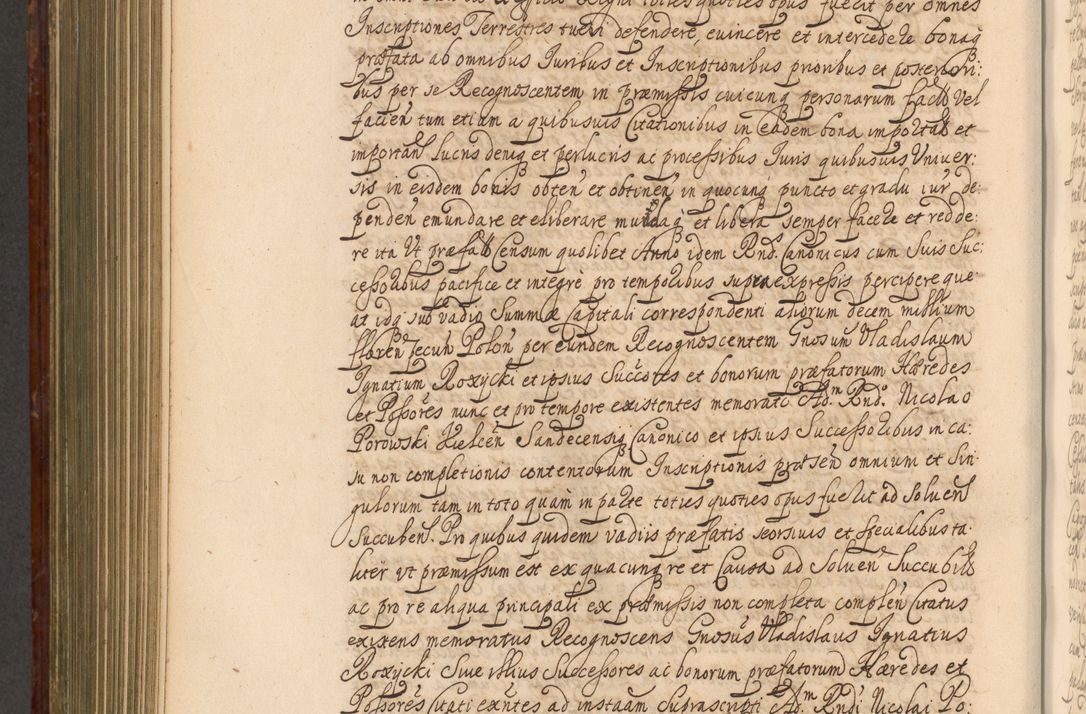 in omni Iuditio et Officio Regni toties quoties opus fuerit per omnes
Inscriptiones Terrestres tueri defendere, evincere et intercedere bonaq
præfata ab omnibus Iuribus et Inscriptionibus prioribus et posteriori:
bus per se Recognoscentem in præmissis cuicunq personarum factis Vel
facien tum etiam a quibusuis Citationibus in eadem bona importatis et
importan lucris deniq et perlucris ac processibus Iuris quibusuis Univer:
sis in eisdem bonis obten et obtinen in quocunq puncto et gradu iur de:
penden emundare et eliberare mundaq et libera semper facere et redde:
re ita Ut præfatus Censum quolibet Anno idem Rnds Canonicus cum Suis Suc:
cessoribus pacifice et integre pro temporibus supra expressis percipere que:
at idq sub vadio Summæ Capitali correspondenti aliorum decem millium
floren Pecun Polon per eundem Recognoscentem Gnosum Vladislaum
Ignatium Roxycki et ipsius Succores et bonorum præfatorum Hæredes
et Possores nunc et pro tempore existentes memorato Ad.m Rndo. Nicolao
Porowski Kielcen Sandecensiq Canonico et ipsius Successoribus in ca:
su non completionis contentorum Inscriptionis præsen omnium et Sin:
gulorum tam in toto quam in parte toties quoties opus fuerit ad Soluen
Succuben. Pro quibus quidem vadiis præfatis seorsivis et specialibus ta:
liter ut præmissum est ex quacunq re et Causa ad Soluen Succubitis
ac pro re aliqua principali ex præmissis non completa complen Citatus
existens memoratus Recognoscens Gnosus Vladislaus Ignatius
Roxycki Sive illius Successores ac bonorum præfatorum Hæredes et
Possores Citati exntes ad instaam Suprascripti Ad.m Rndi Nicolai Po: